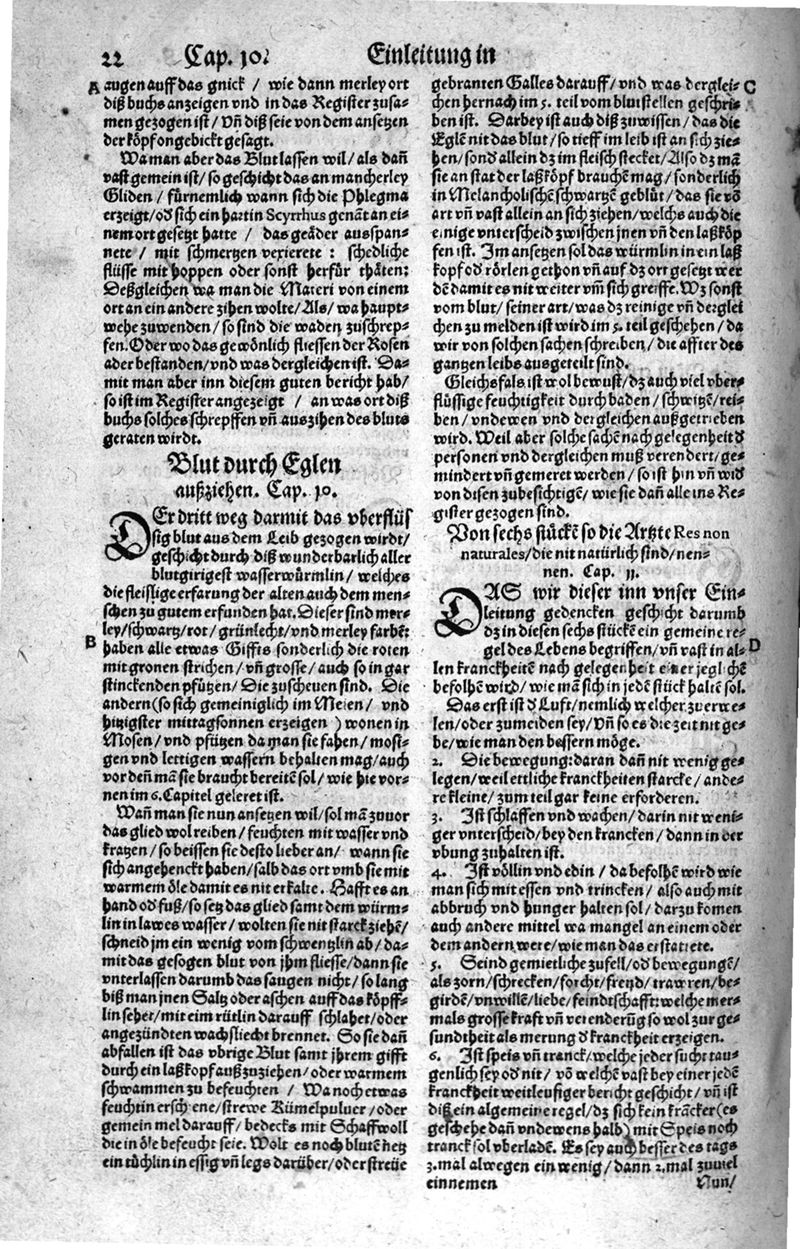 22 Cap. 10. Einleitung in
A augen auff das gnick / wie dann merley ort
diß buchs anzeigen vnd in das Register zusa⸗
men gezogen ist / Vñ diß seie von dem ansetzen
der köpf ongebickt gesagt.
Wa man aber das Blut lassen wil / als dañ
vast gemein ist / so geschicht das an mancherley
Gliden / fürnemlich wann sich die Phlegma
erzeigt / od sich ein hart in Scyrrhus genāt an ei⸗
nem ort gesetzt hatte / das geäder ausspan⸗
nete / mit schmertzen vexierete : schedliche
flüsse mit hoppen oder sonst herfür thäten:
Deßgleichen wa man die Materi von einem
ort an ein andere zihen wolte / Als / wa haupt⸗
wehe zuwenden / so sind die waden zuschrep⸗
fen. Oder wo das gewönlich fliessen der Rosen
ader bestanden / vnd was dergleichen ist. Da⸗
mit man aber inn diesem guten bericht hab /
so ist im Register angezeigt / an was ort diß
buchs solches schrepffen vñ auszihen des bluts
geraten wirdt.
Blut durch Eglen
außziehen. Cap. 10.
DEr dritt weg darmit das vberflüs
sig blut aus dem Leib gezogen wirdt /
geschicht durch diß wunderbarlich aller
blutgirigest wasserwürmlin / welches
die fleissige erfarung der alten auch dem men⸗
schen zu gutem erfunden hat. Dieser sind mer⸗
ley / schwartz / rot / grünlecht / vnd merley farbē:
B haben alle etwas Giffts sonderlich die roten
mit gronen strichen / vñ grosse / auch so in gar
stinckenden pfützen / Die zuscheuen sind. Die
andern (so sich gemeiniglich im Meien / vnd
hitzigster mittagsonnen erzeigen ) wonen in
Mosen / vnd pfützen da man sie fahen / most⸗
gen vnd lettigen wassern behalten mag / auch
vor deñ mā sie braucht bereitē sol / wie hie vor⸗
nen im 6. Capitel geleret ist.
Wañ man sie nun ansetzen wil / sol mā zuuor
das glied wol reiben / feuchten mit wasser vnd
kratzen / so beissen sie desto lieber an / wann sie
sich angehenckt haben / salb das ort vmb sie mit
warmem öle damit es nit erkalte. Hafft es an
hand od fuß / so setz das glied samt dem würm⸗
lin in lawes wasser / wolten sie nit starck ziehē /
schneid jm ein wenig vom schwentzlin ab / da⸗
mit das gesogen blut von jhm fliesse / dann sie
vnterlassen darumb das saugen nicht / so lang
biß man jnen Saltz oder aschen auff das köpff⸗
lin sehet / mit eim rütlin darauff schlahet / oder
angezündten wachsliecht brennet. So sie dañ
abfallen ist das vbrige Blut samt jhrem gifft
durch ein laßkopf auß zu ziehen / oder warmem
schwammen zu befeuchten / Wa noch etwas
feuchtin erschene / strewe Kümelpuluer / oder
gemein mel darauff / bedecks mit Schaffwoll
die in öle befeucht seie. Wolt es noch blutē netz
ein tüchlin in essig vñ legs darüber / oder streüe
gebranten Galles darauff / vnd was derglei⸗ C
chen hernach im 5. teil vom blutstellen geschri⸗
ben ist. Darbey ist auch diß zuwissen / das die
Eglē nit das blut / so tieff im leib ist an sich zie⸗
hen / sond allein dz im fleisch stecket / Also dz mā
sie an stat der laßköpf brauchē mag / sonderlich
in Melancholischē schwartzē geblüt / das sie vō
art vñ vast allein an sich ziehen / welchs auch die
einige vnterscheid zwischen jnen vñ den laßköp
fen ist. Im ansetzen sol das würmlin in ein laß
kopf od rörlen gethon vñ auf dz ort gesetzt wer
dē damit es nit weiter vm̄ sich greiffe. Wz sonst
vom blut / seiner art / was dz reinige vñ derglei
chen zu melden ist wird im 5. teil geschehen / da
wir von solchen sachen schreiben / die affter des
gantzen leibs ausgeteilt sind.
Gleichsfals ist wol bewust / dz auch viel vber⸗
flüssige feuchtigkeit durch baden / schwitzē / rei⸗
ben / vndewen vnd dergleichen außgetrieben
wird. Weil aber solche sachē nach gelegenheit d
personen vnd dergleichen muß verendert / ge⸗
mindert vñ gemeret werden / so ist hin vñ wid
von disen zubesichtigē / wie sie dañ alle ins Re⸗
gister gezogen sind.
Von sechs stückē so die Artzte Res non
naturales / die nit natürlich sind / nen⸗
nen. Cap. 11.
DAS wir dieser inn vnser Ein⸗
leitung gedencken geschicht darumb
dz in diesen sechs stückē ein gemeine re⸗
gel des Lebens begriffen / vñ vast in al⸗ D
len kranckheitē nach gelegenheit einer jeglichē
befolhē wird / wie mā sich in jedē stück haltē sol.
Das erst ist d Luft / nemlich welcher zu erwe⸗
len / oder zumeiden sey / Vñ so es die zeit nit ge⸗
be / wie man den bessern möge.
2. Die bewegung: daran dañ nit wenig ge⸗
legen / weil ettliche kranckheiten starcke / ande⸗
re kleine / zum teil gar keine erforderen.
3. Ist schlaffen vnd wachen / darin nit weni⸗
ger vnterscheid / bey den krancken / dann in der
vbung zuhalten ist.
4. Ist völlin vnd edin / da befolhē wird wie
man sich mit essen vnd trincken / also auch mit
abbruch vnd hunger halten sol / darzu komen
auch andere mittel wa mangel an einem oder
dem andern were / wie man das erstattete.
5. Seind gemietliche zufell / od bewegungē /
als zorn / schrecken / forcht / freyd / trawren / be⸗
girdē / vnwillē / liebe / feindtschafft: welche mer⸗
mals grosse kraft vñ verenderūg so wol zur ge⸗
sundtheit als merung d kranckheit erzeigen.
6. Ist speis vñ tranck / welche jeder sucht tau⸗
genlich sey od nit / vō welchē vast bey einer jedē
kranckheit weitleufiger bericht geschicht / vñ ist
diß ein algemeine regel / dz sich kein krācker (es
geschehe dañ vndewens halb) mit Speis noch
tranck sol vberladē. Es sey auch besser des tags
3. mal alwegen ein wenig / dann 2. mal zuuiel
einnemen Nun /